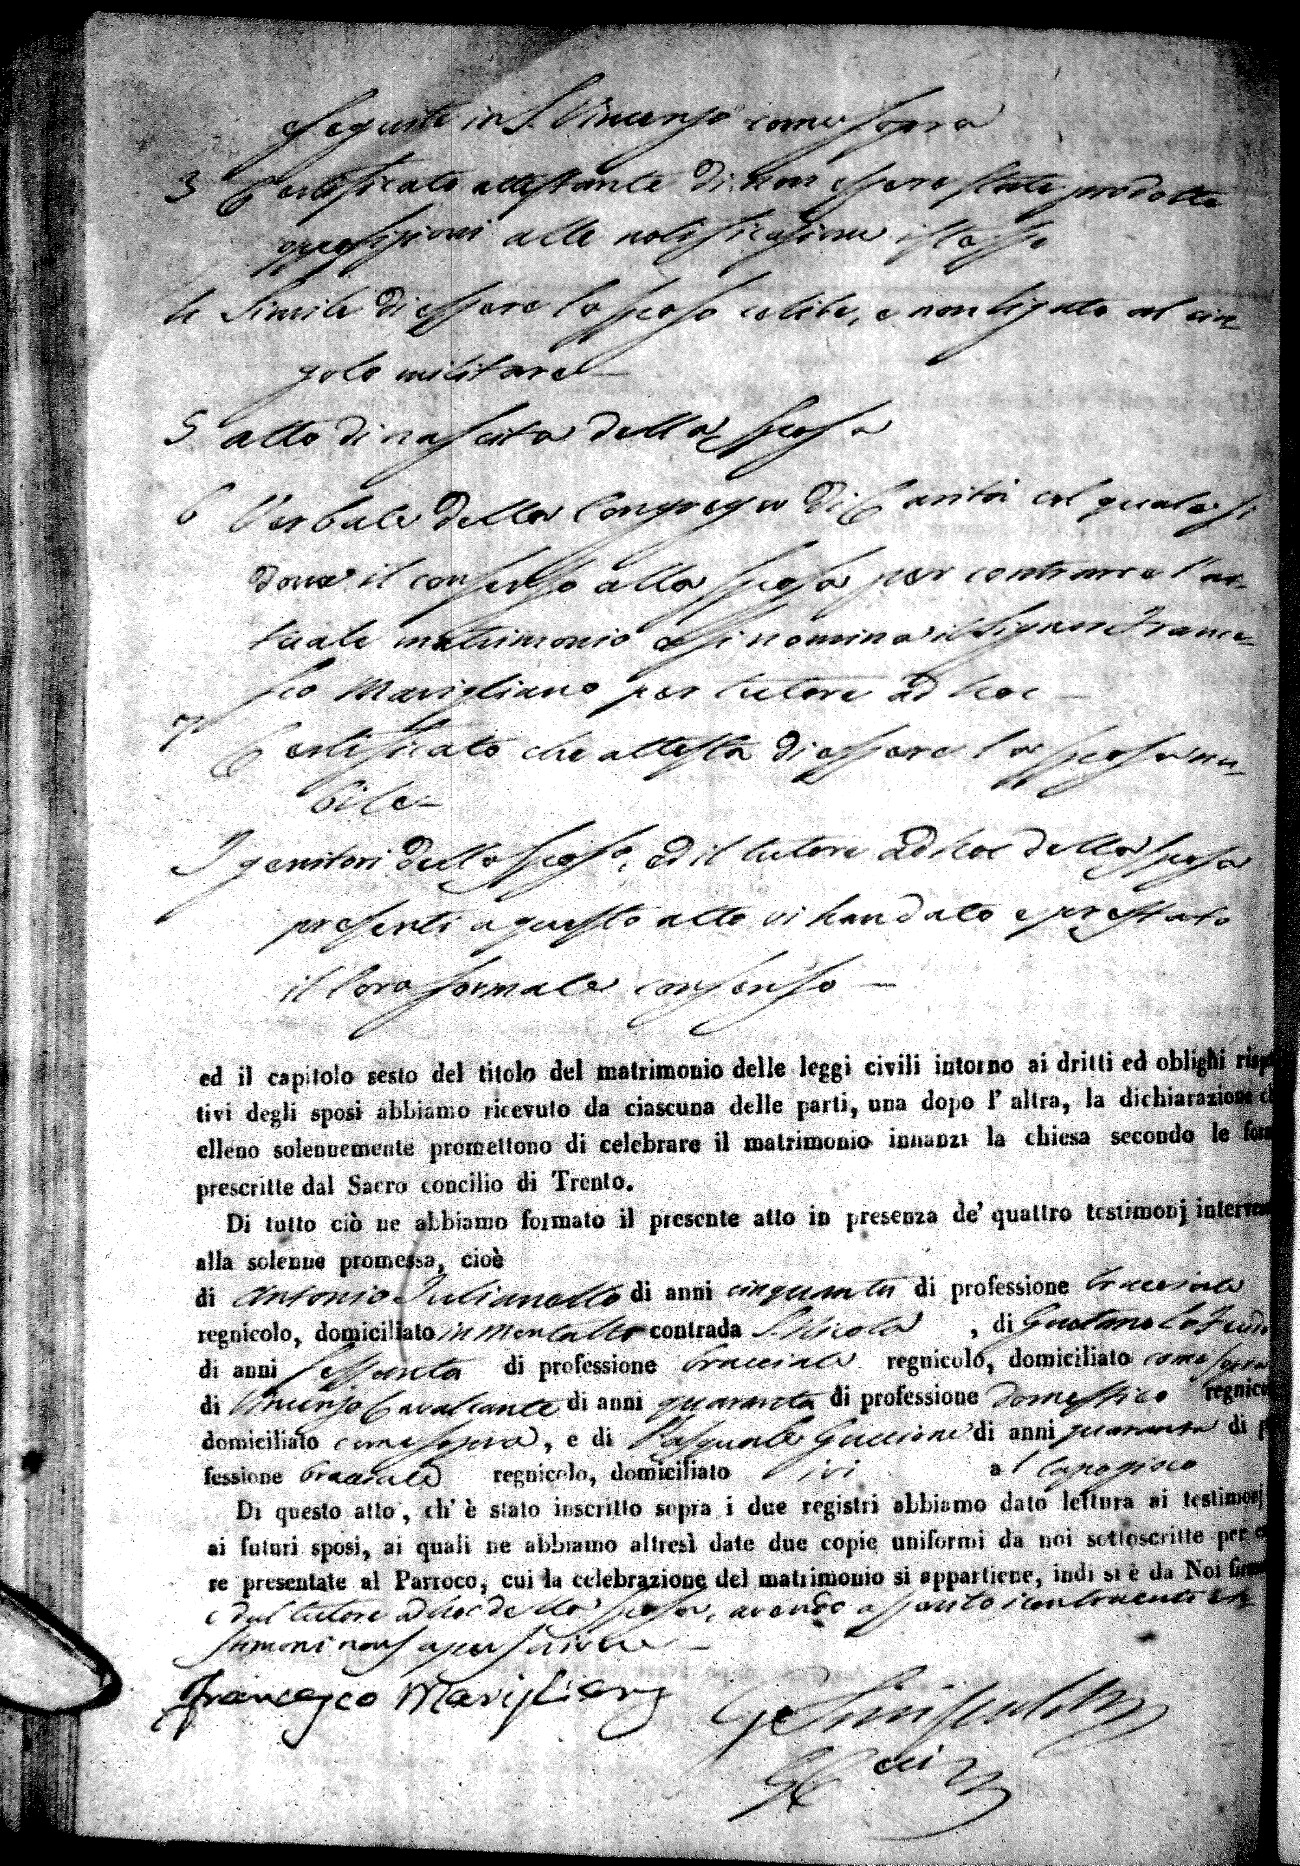 eseguite in S. Vincenzo come sopra
3 Certificato attestante di non essere state prodotte
opposizioni alle notificazioni istesse
4 Simile di essere lo sposo celibe, e non ligato al cin-
golo militare
5 atto di nascita della sposa
6 Verbale della Congrega di Carità col quale si
dona il consenso alla sposa per contrarre l'at-
tuale matrimonio e si nomina il Signor France-
sco Marigliano per tutore ad hoc
7 Certificato che attesta di essere la sposa nu-
bile
I genitori dello sposo, ed il tutore ad hoc della sposa
presenti a questo atto vi han dato e prestato
il loro formale consenso
ed il capitolo sesto del titolo del matrimonio delle leggi civili intorno ai dritti ed oblighi rispe
tivi degli sposi abbiamo ricevuto da ciascuna delle parti, una dopo l' altra, la dichiarazione ch
elleno solennemente promettono di celebrare il matrimonio innanzi la chiesa secondo le form
prescritte dal Sacro concilio di Trento.
Di tutto ciò ne abbiamo formato il presente atto in presenza de' quattro testimonj interven
alla solenne promessa, cioè
di Antonio Iulianello di anni cinquanta di professione bracciale
regnicolo, domiciliato in Montalto contrada S. Nicola , di Gaetano
di anni sessanta di professione bracciale regnicolo, domiciliato come sopra
di Vincenzo Cavalcante di anni quaranta di professione domestico regnico
domiciliato come sopra, e di Pasquale Guccione di anni quaranta di p
fessione bracciale regnicolo, domiciliato ivi al
Di questo atto, ch' è stato inscritto sopra i due registri abbiamo dato lettura ai testimonj
ai futuri sposi, ai quali ne abbiamo altresì date due copie uniformi da noi sottoscritte per e
re presentate al Parroco, cui la celebrazione del matrimonio si appartiene, indi si è da Noi firm
e dal tutore ad hoc della sposa, avendo assunto i contraenti e te-
stimoni non saper scrivere
Francesco Marigliano